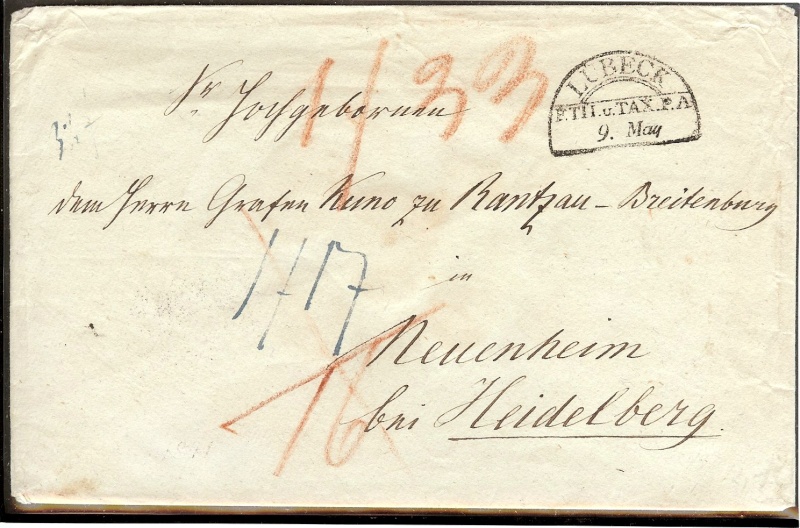 LÜBECK
F.TH.u.TAX.P.A
9. May
Sr Hochgebornen
1/33
dem Herrn Grafen Kuno zu Rantzau - Breitenburg
1/17
in
Neuenheim
16
bei Heidelberg.